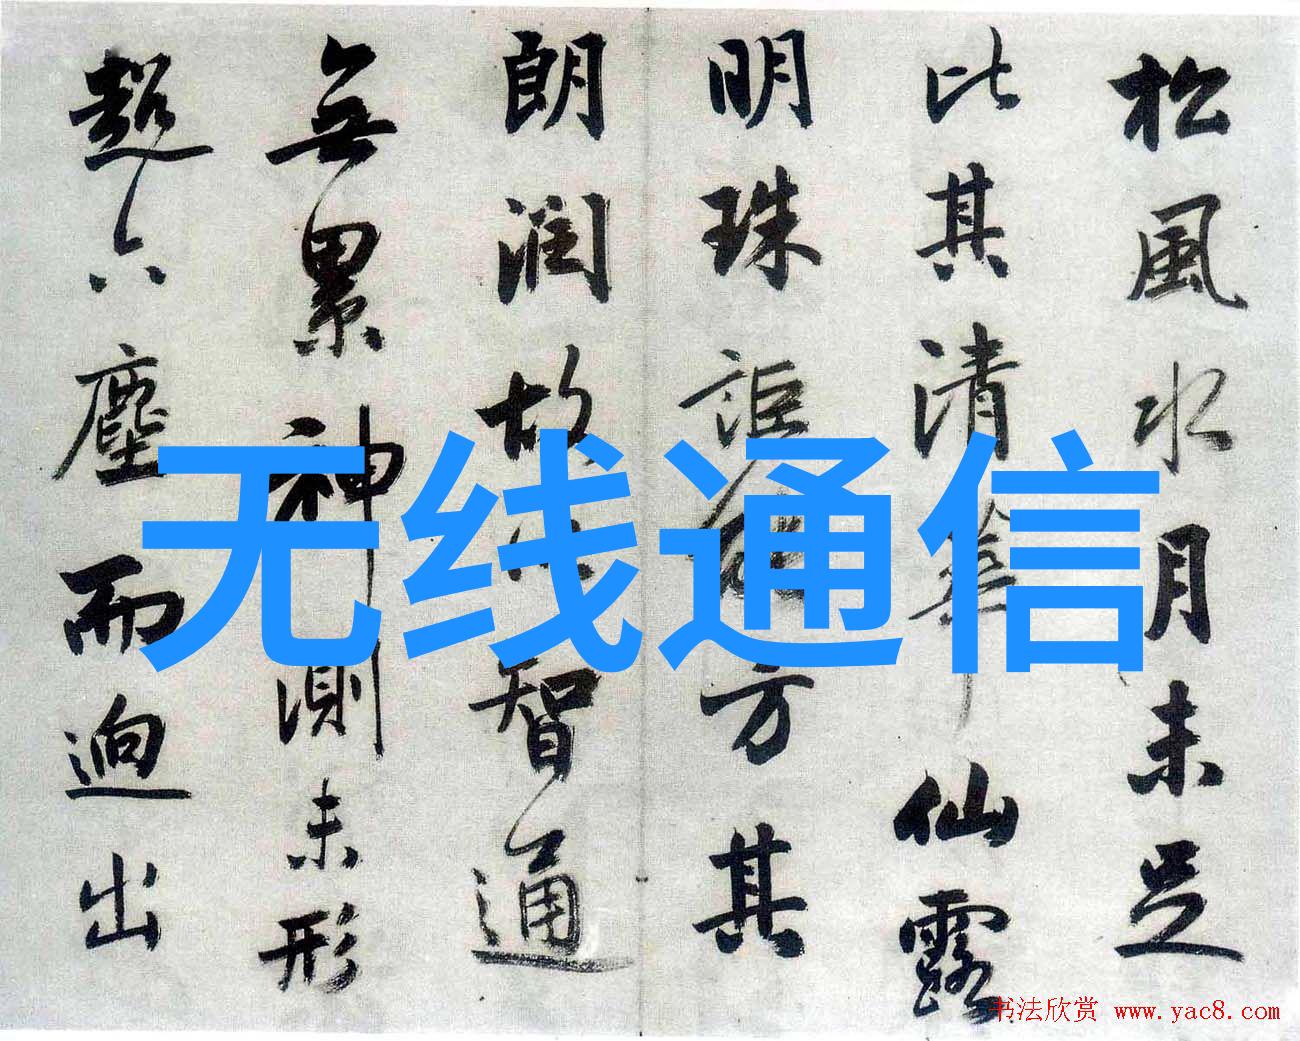 松風水月未足
比其清華仙露
明珠詎能方其
朗潤故以智通
無累神測未形
超六塵而迥出
无线通信
书法欣赏 www.yac8.com